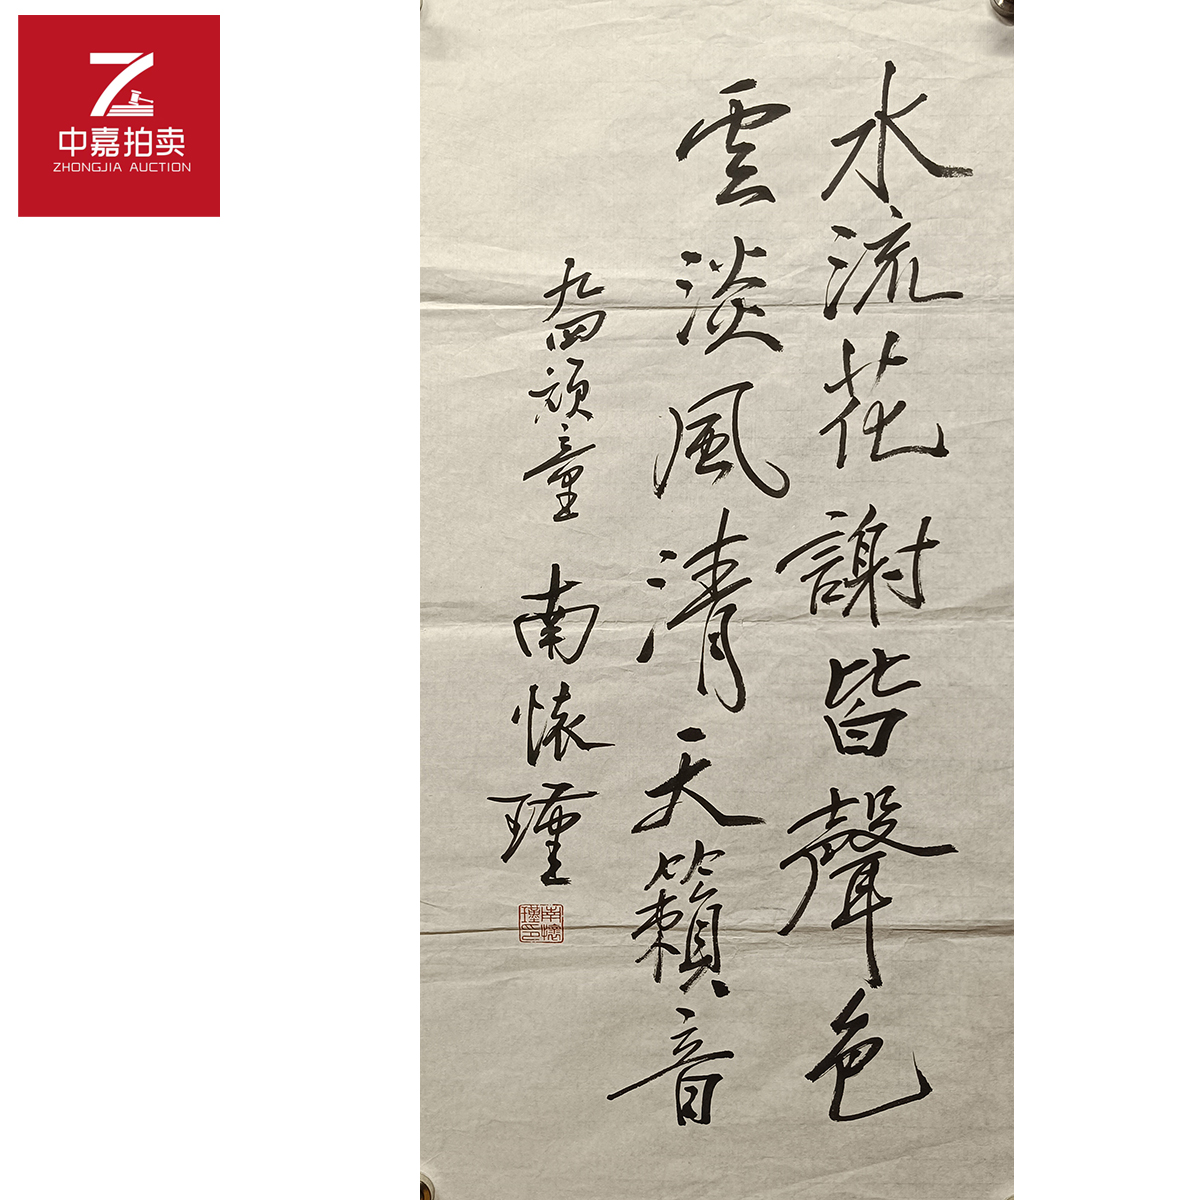 中嘉拍卖
ZHONGJIA AUCTION
水流花謝皆聲色
雲淡風清天籟音
九四頑童 南懷瑾
南懷瑾印